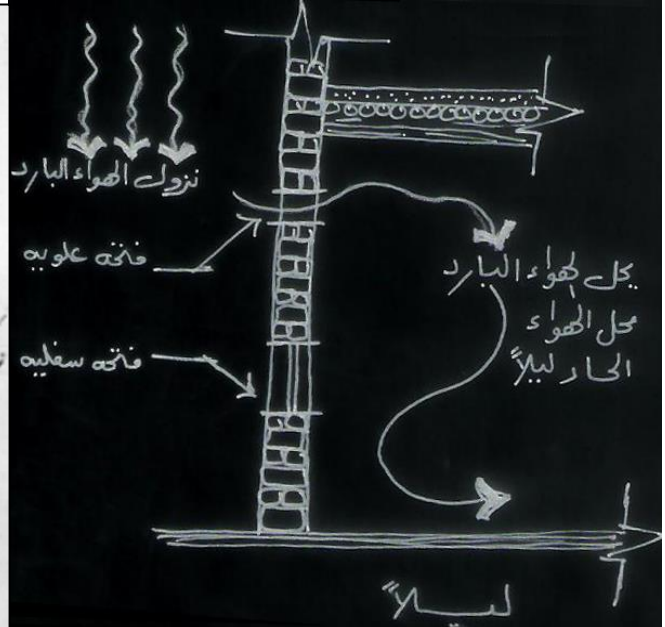 نزول الهواء البارد
فتحه علويه
فتحه سفليه
يحل الهواء البارد
محل الهواء
الحار ليلاً
ليلاً